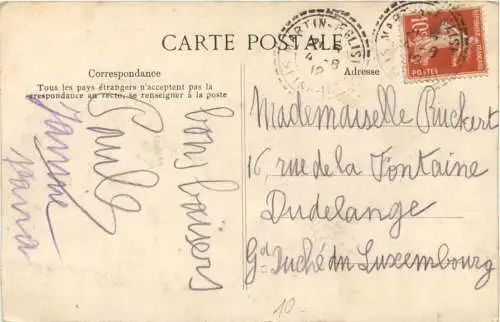 CARTE POSTALE
Correspondance
Tous les pays étrangers n'acceptent pas la
correspondance au recto, se renseigner à la poste
Adresse
bons baisers
Paule
Mademaiselle Ruckert
16, rue de la Fontaine
Dudelange
Gd Duché du Luxembourg
10c
POSTES
10-